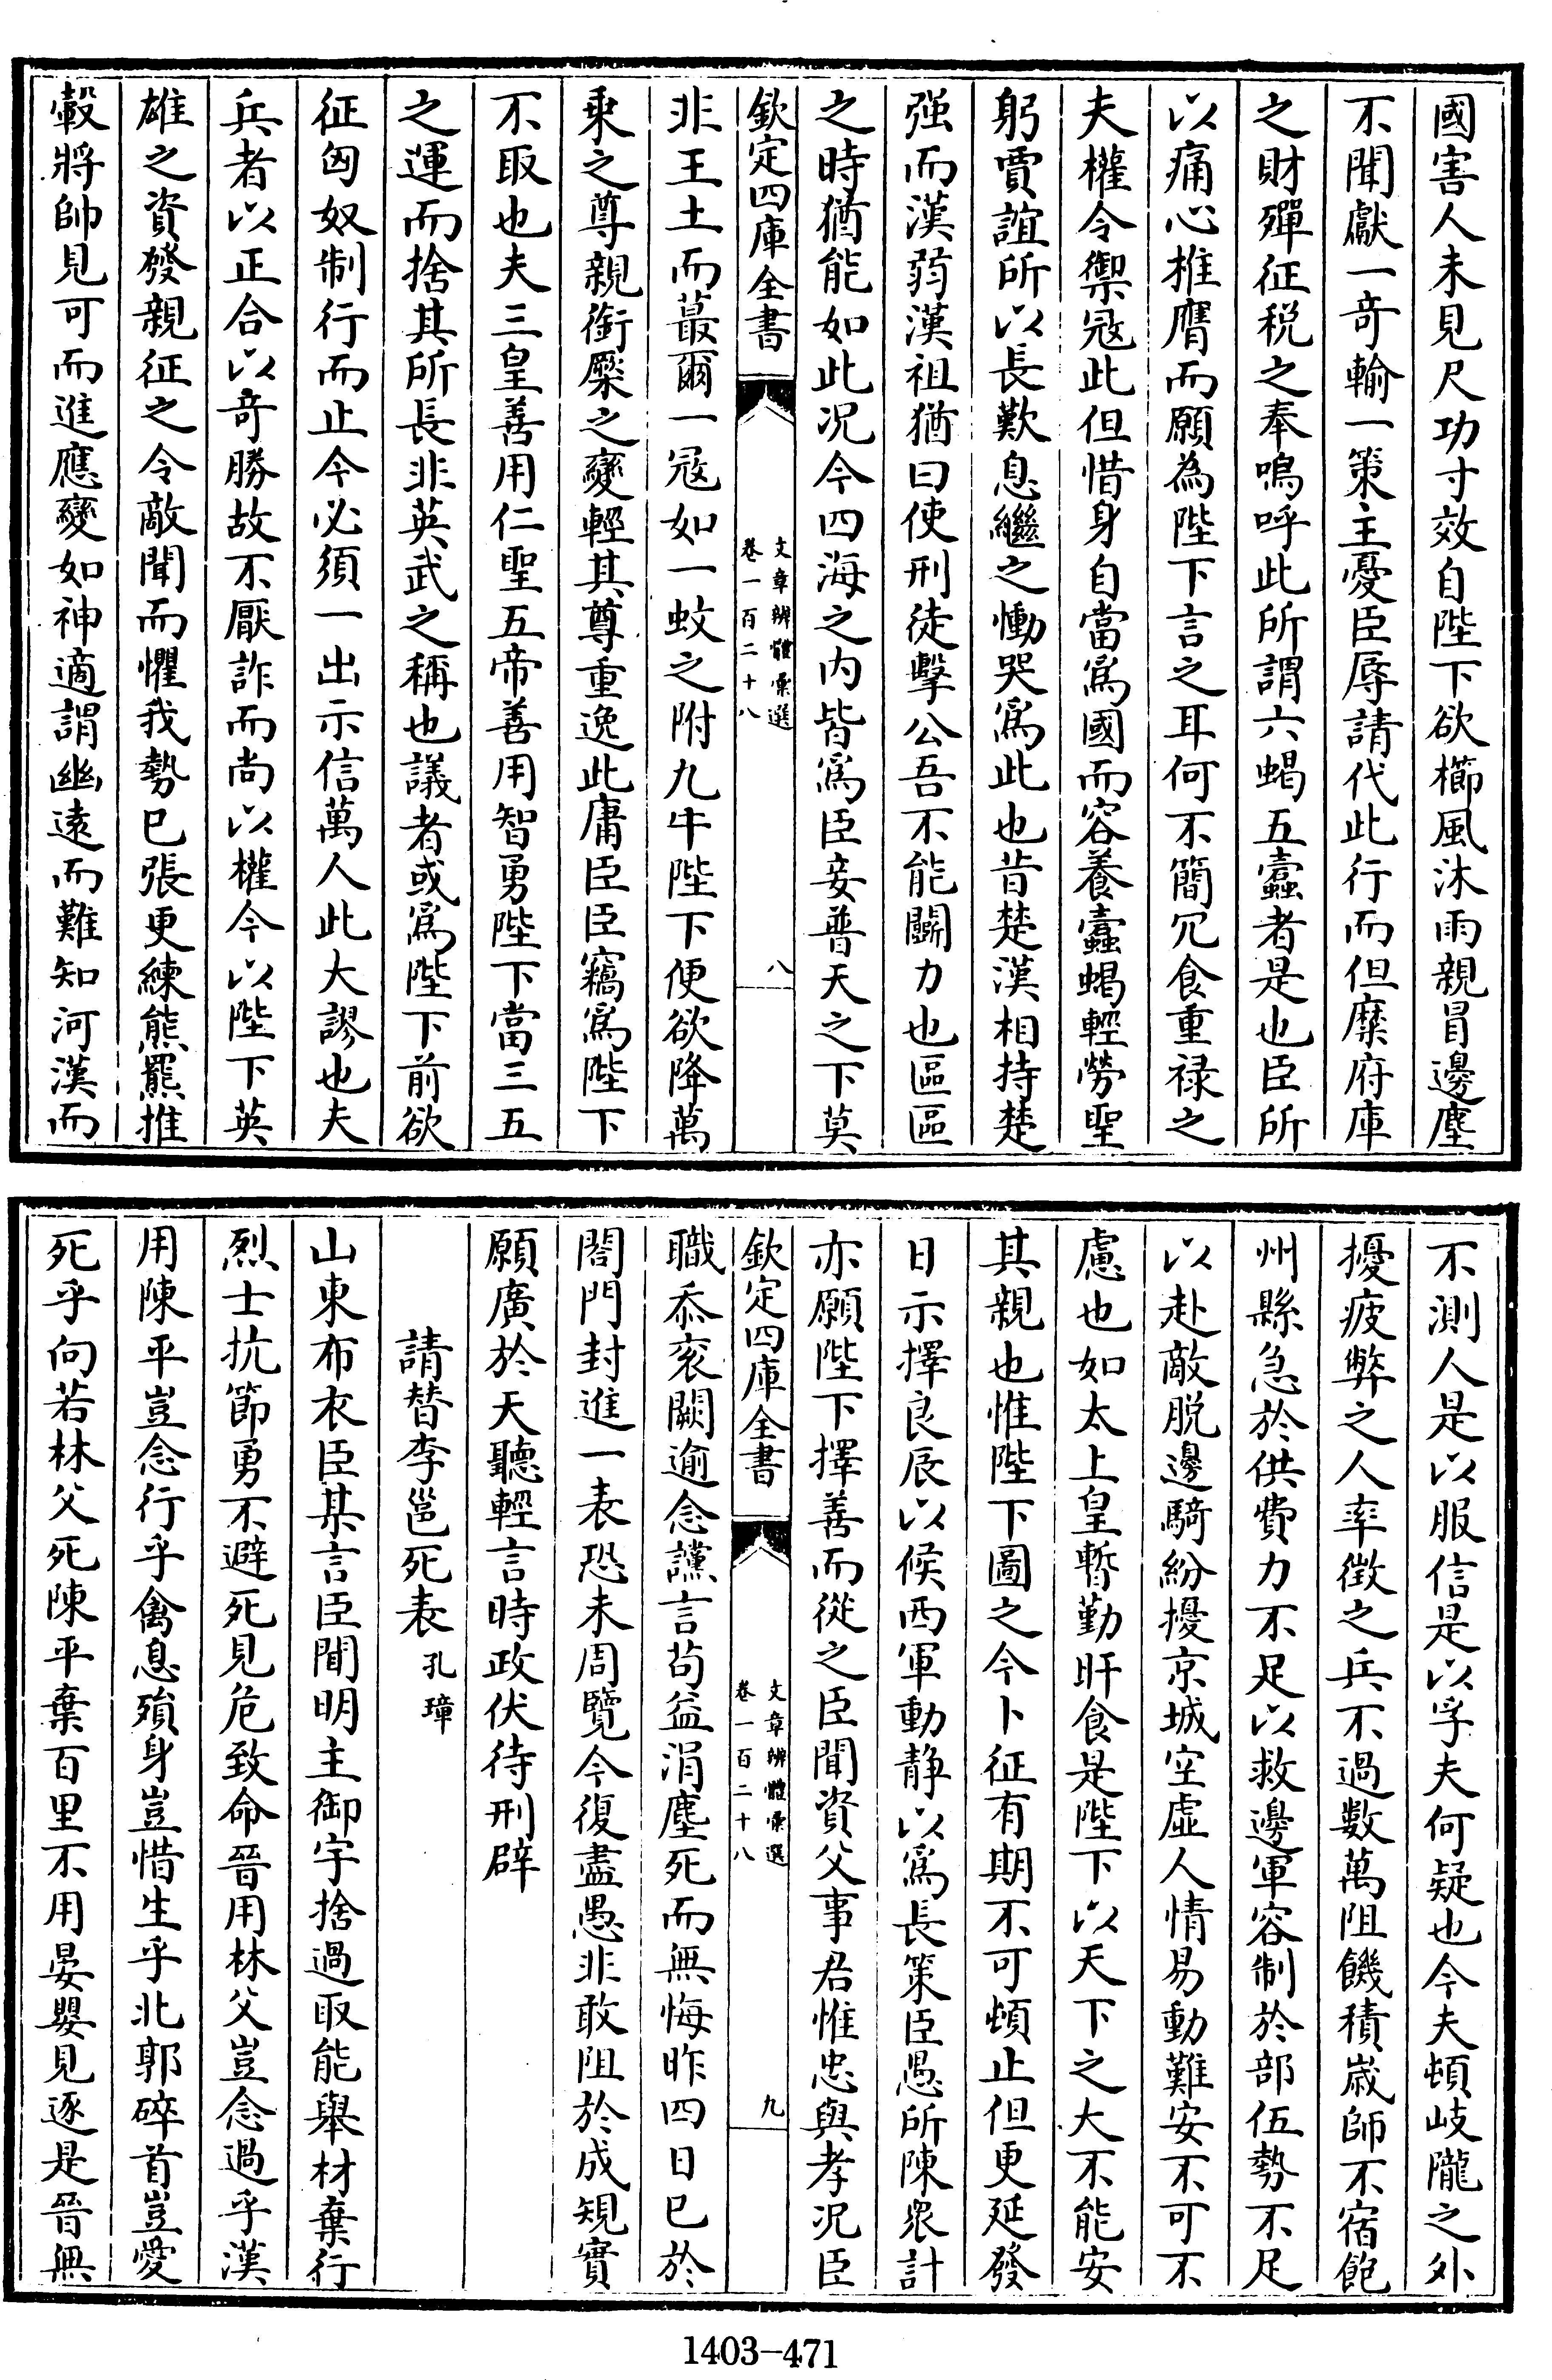 國害人未見尺功寸效自陛下欲櫛風沐雨親冒邊塵
不聞獻一竒輸一策主憂臣辱請代此行而但糜府庫
之財殫征税之奉嗚呼此所謂六蝎五蠹者是也臣所
以痛心推膺而願為陛下言之耳何不簡冗食重禄之
夫權令禦冦此但惜身自當爲國而容養蠹蝎輕勞聖
躬賈誼所以長歎息繼之慟哭爲此也昔楚漢相持楚
强而漢弱漢祖猶曰使刑徒擊公吾不能鬭力也區區
之時猶能如此况今四海之内皆爲臣妾普天之下莫
欽定四庫全書
文章辨體彙選
卷一百二十八
八
非王土而蕞爾一冦如一蚊之附九牛陛下便欲降萬
乘之尊親銜橜之變輕其尊重逸此庸臣臣竊爲陛下
不取也夫三皇善用仁聖五帝善用智勇陛下當三五
之運而捨其所長非英武之稱也議者或爲陛下前欲
征匈奴制行而止今必須一出示信萬人此大謬也夫
兵者以正合以竒勝故不厭詐而尚以權今以陛下英
雄之資發親征之令敵聞而懼我勢已張更練熊羆推
轂將帥見可而進應變如神適謂幽遠而難知河漢而
不測人是以服信是以孚夫何疑也今夫頓岐隴之外
擾疲弊之人率徵之兵不過數萬阻饑積嵗師不宿飽
州縣急於供費力不足以救邊軍容制於部伍勢不足
以赴敵脱邊騎紛擾京城空虚人情易動難安不可不
慮也如太上皇暫勤旰食是陛下以天下之大不能安
其親也惟陛下圖之今卜征有期不可頓止但更延發
日示擇良辰以候西軍動静以爲長策臣愚所陳衆計
亦願陛下擇善而從之臣聞資父事君惟忠與孝况臣
欽定四庫全書
文章辨體彙選
卷一百二十八
九
職忝衮闕逾念讜言苟益涓塵死而無悔昨四日已於
閤門封進一表恐未周覽今復盡愚非敢阻於成規實
願廣於天聽輕言時政伏待刑辟
請替李邕死表 孔璋
山東布衣臣某言臣聞明主御宇捨過取能舉材棄行
烈士抗節勇不避死見危致命晉用林父豈念過乎漢
用陳平豈念行乎禽息殞身豈惜生乎北郭碎首豈愛
死乎向若林父死陳平棄百里不用晏嬰見逐是晉無
1403-471